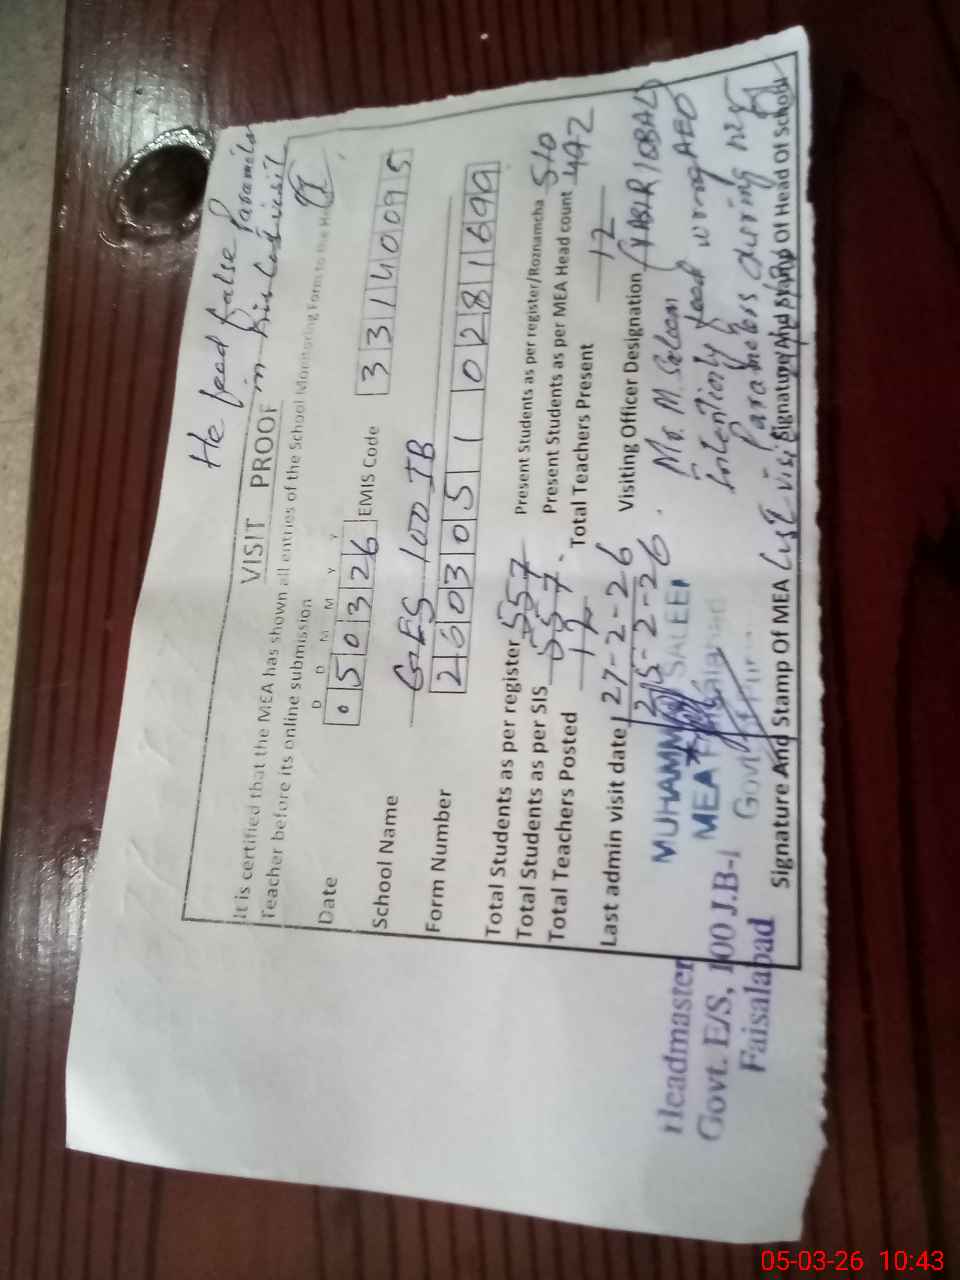 He feed false Parameter
in his last visit
VISIT PROOF
It is certified that the MEA has shown all entries of the School Monitoring Form to the Head
Teacher before its online submission
D D M M Y Y
Date 0 5 0 3 2 6 EMIS Code 3 3 1 4 0 0 9 5
School Name GES 100 JB
Form Number 2 6 0 3 0 5 1 1 0 2 8 1 6 9 9
Total Students as per register 557 Present Students as per register/Roznamcha 510
Total Students as per SIS 557 Present Students as per MEA Head count 492
Total Teachers Posted 17 Total Teachers Present 17
Last admin visit date 27-2-26 Visiting Officer Designation
25-2-26
Mr. M. Saleem AEO
feed wrong
during his
MUHAMMAD SALEEM
MEA
Signature And Stamp Of MEA Signature And Stamp Of Head Of School
Headmaster
Govt. E/S, 100 J.B-I
Faisalabad
05-03-26 10:43